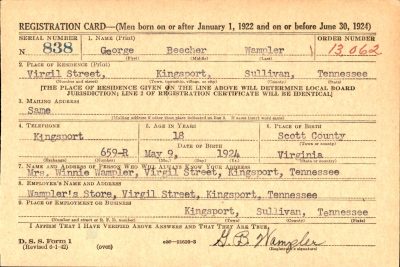 REGISTRATION CARD—(Men born on or after January 1, 1922 and on or before June 30, 1924)
SERIAL NUMBER 1. NAME (Print) ORDER NUMBER
N. 838 George Beecher Wampler 13,062
(First) (Middle) (Last)
2. PLACE OF RESIDENCE (Print)
Virgil Street, Kingsport, Sullivan, Tennessee
(Number and street) (Town, township, village, or city) (County) (State)
[THE PLACE OF RESIDENCE GIVEN ON THE LINE ABOVE WILL DETERMINE LOCAL BOARD
JURISDICTION; LINE 2 OF REGISTRATION CERTIFICATE WILL BE IDENTICAL]
3. MAILING ADDRESS
Same
(Mailing address if other than place indicated on line 2. If same insert word same)
4. TELEPHONE 5. AGE IN YEARS 6. PLACE OF BIRTH
Kingsport 18 Scott County
DATE OF BIRTH (Town or county)
659-R May 9, 1924 Virginia
(Exchange) (Number) (Mo.) (Day) (Yr.) (State or country)
7. NAME AND ADDRESS OF PERSON WHO WILL ALWAYS KNOW YOUR ADDRESS
Mrs. Winnie Wampler, Virgil Street, Kingsport, Tennessee
8. EMPLOYER'S NAME AND ADDRESS
Wampler's Store, Virgil Street, Kingsport, Tennessee
9. PLACE OF EMPLOYMENT OR BUSINESS
Kingsport, Sullivan, Tennessee
(Number and street or R. F. D. number) (Town) (County) (State)
I AFFIRM THAT I HAVE VERIFIED ABOVE ANSWERS AND THAT THEY ARE TRUE.
D. S. S. Form 1 G. B. Wampler
(Revised 6-9-42) (over) (Registrant's signature)